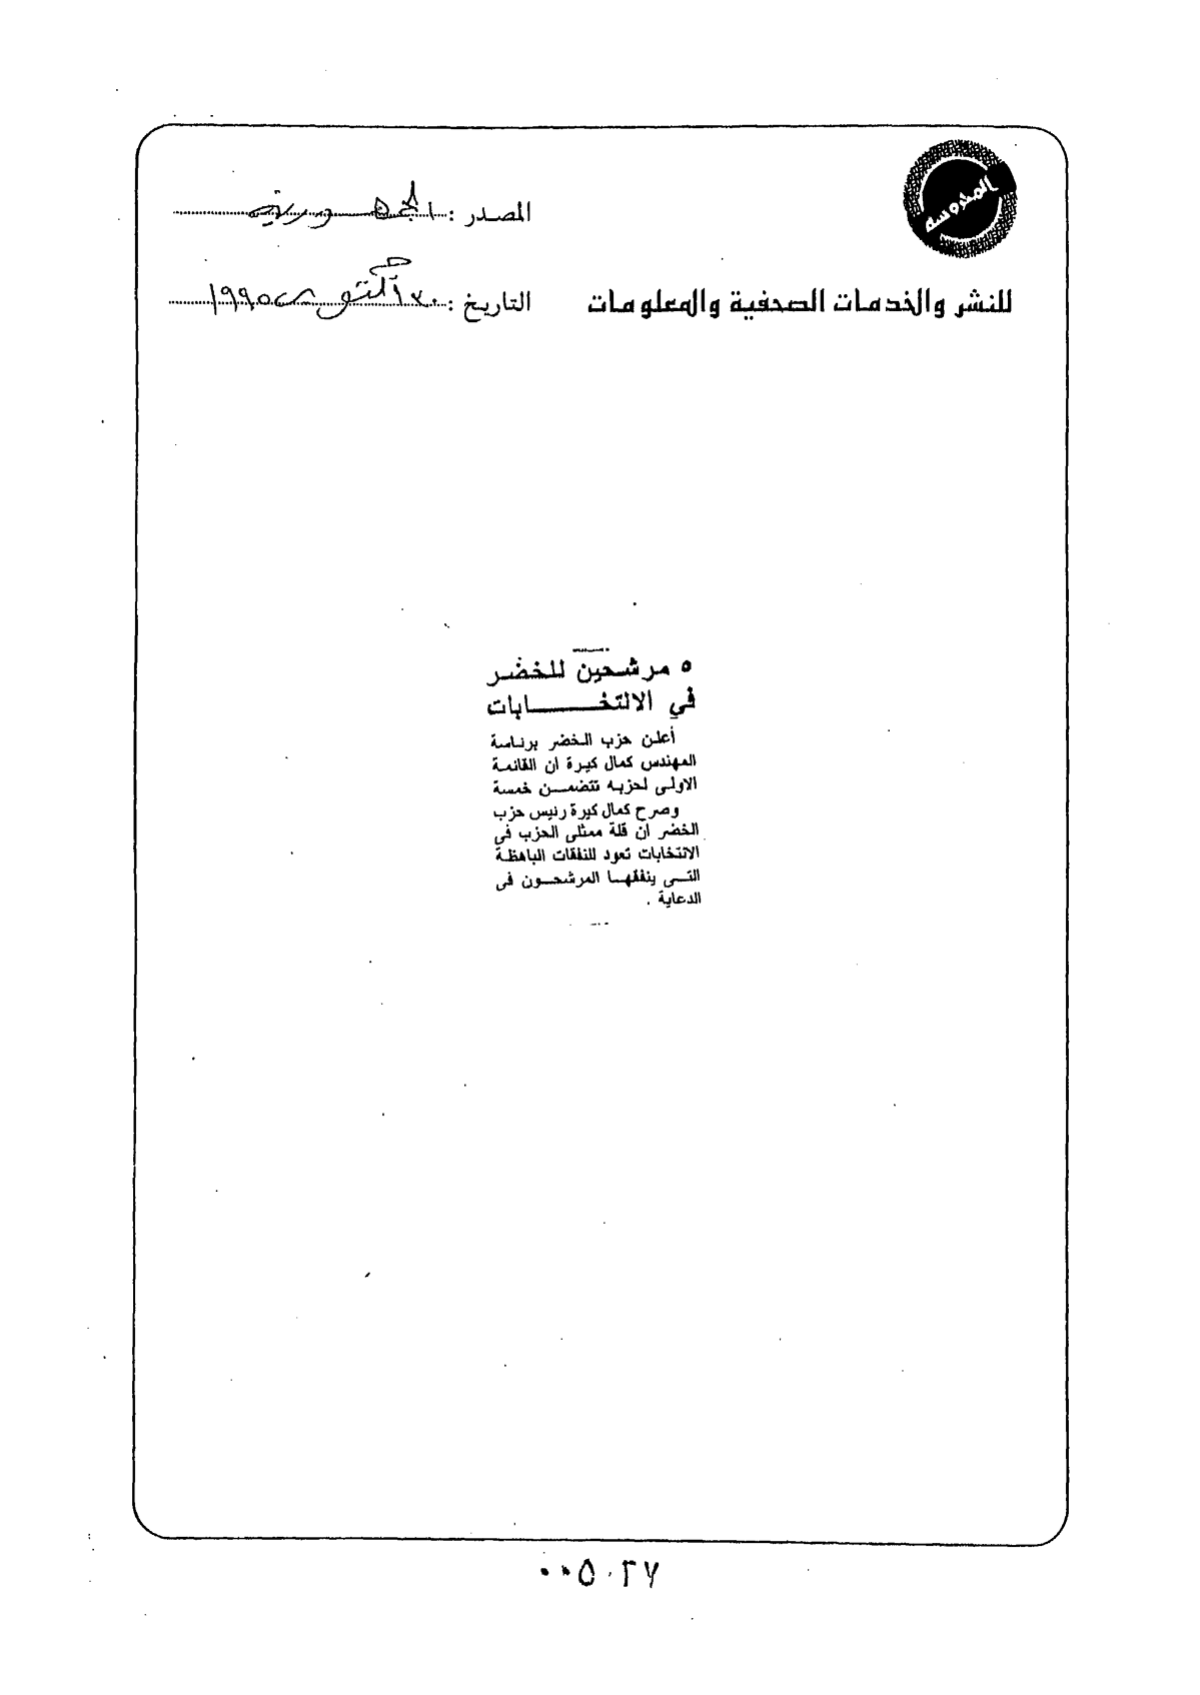 المحروسة
المصدر : الجمهورية
للنشر والخدمات الصحفية والمعلومات
التاريخ : ٣٠ أكتوبر ١٩٩٥
٥ مرشحين للخضر
في الانتخابات
أعلن حزب الخضر برئاسة
المهندس كمال كيرة ان القائمة
الاولى لحزبه تتضمن خمسة
وصرح كمال كيرة رئيس حزب
الخضر ان قلة ممثلى الحزب فى
الانتخابات تعود للنفقات الباهظة
التى ينفقها المرشحون فى
الدعاية .
٠٠٥٠٢٧